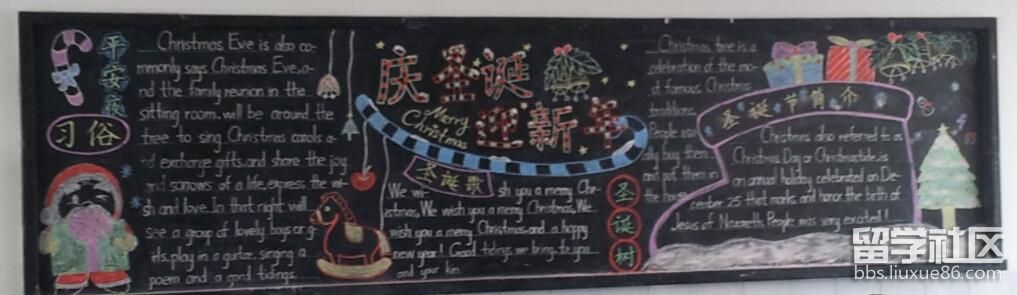 平安夜
习俗
Christmas Eve is also co-
mmonly says Christmas Eve, a-
nd the family reunion in the
sitting room, will be around the
tree to sing Christmas carols a-
nd exchange gifts, and share the joy
and sorrows of a life, express the wi-
sh and love. In that right will
see a group of lovely boys or g-
irls, play in a guitar, singing a
poem and a good tidings.
庆圣诞
迎新年
Merry
Christmas
圣诞歌
We wi- sh you a merry Chr-
istmas, We wish you a merry Christmas, We
wish you a merry Christmas and a happy
new year! Good tidings we bring to you
and your kin.
圣诞树
Christmas tree is a
celebration of the mo-
st famous Christmas
traditions.
People usu-
ally buy them
and put them in
the house
圣诞节简介
Christmas also referred to as
Christmas Day or Christmastide, is
an annual holiday celebrated on De-
cember 25 that marks and honor the birth of
Jesus of Nazareth. People was very excited!
留学社区
bbs.liuxue86.com